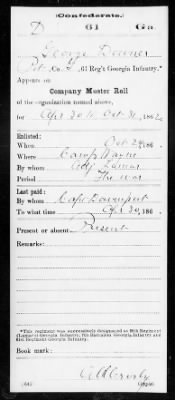 (Confederate.)
D 61 Ga
George Downer
Pvt Co. , 61 Reg't Georgia Infantry.*
Appears on
Company Muster Roll
of the organization named above,
for Apr 30 to Oct 31, 186
Enlisted:
When Oct 24, 186 .
Where Camp Wayne
By whom Adj Lamar
Period The war
Last paid:
By whom Capt Davenport
To what time Apr 30, 186 .
Present or absent Present
Remarks:
*This regiment was successively designated as 26th Regiment
(Lamar's) Georgia Infantry, 7th Battalion Georgia Infantry and
61st Regiment Georgia Infantry.
Book mark:
(642) Copyist.